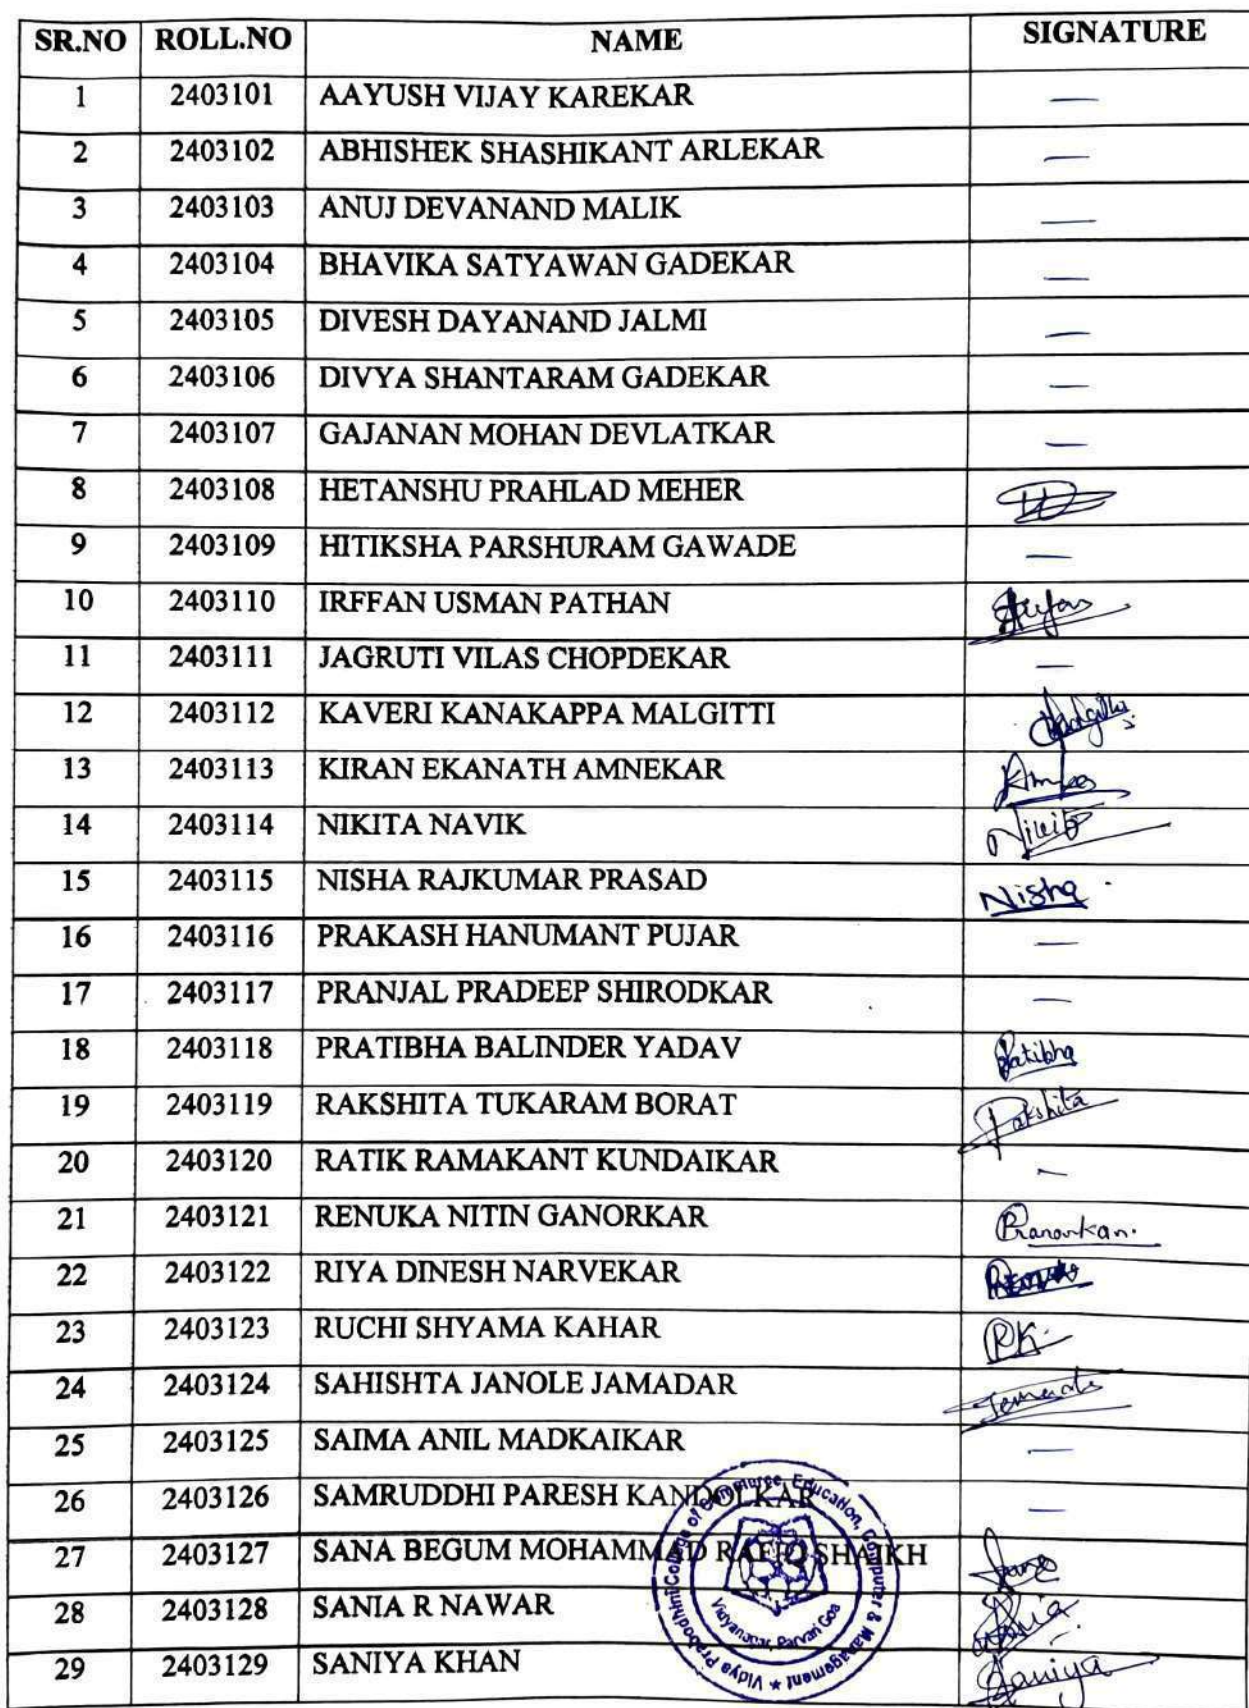 SR.NO ROLL.NO NAME SIGNATURE
1 2403101 AAYUSH VIJAY KAREKAR —
2 2403102 ABHISHEK SHASHIKANT ARLEKAR —
3 2403103 ANUJ DEVANAND MALIK —
4 2403104 BHAVIKA SATYAWAN GADEKAR —
5 2403105 DIVESH DAYANAND JALMI —
6 2403106 DIVYA SHANTARAM GADEKAR —
7 2403107 GAJANAN MOHAN DEVLATKAR —
8 2403108 HETANSHU PRAHLAD MEHER
9 2403109 HITIKSHA PARSHURAM GAWADE —
10 2403110 IRFFAN USMAN PATHAN
11 2403111 JAGRUTI VILAS CHOPDEKAR —
12 2403112 KAVERI KANAKAPPA MALGITTI
13 2403113 KIRAN EKANATH AMNEKAR
14 2403114 NIKITA NAVIK
15 2403115 NISHA RAJKUMAR PRASAD Nisha
16 2403116 PRAKASH HANUMANT PUJAR —
17 2403117 PRANJAL PRADEEP SHIRODKAR —
18 2403118 PRATIBHA BALINDER YADAV Pratibha
19 2403119 RAKSHITA TUKARAM BORAT Rakshita
20 2403120 RATIK RAMAKANT KUNDAIKAR —
21 2403121 RENUKA NITIN GANORKAR
22 2403122 RIYA DINESH NARVEKAR
23 2403123 RUCHI SHYAMA KAHAR RK
24 2403124 SAHISHTA JANOLE JAMADAR
25 2403125 SAIMA ANIL MADKAIKAR —
26 2403126 SAMRUDDHI PARESH KANDOLKAR —
27 2403127 SANA BEGUM MOHAMMAD RAFIQ SHAIKH
28 2403128 SANIA R NAWAR
29 2403129 SANIYA KHAN Saniya
Vidya Prabodhini College of Commerce, Education, Computer & Management ★
Vidyanagar, Parvari Goa